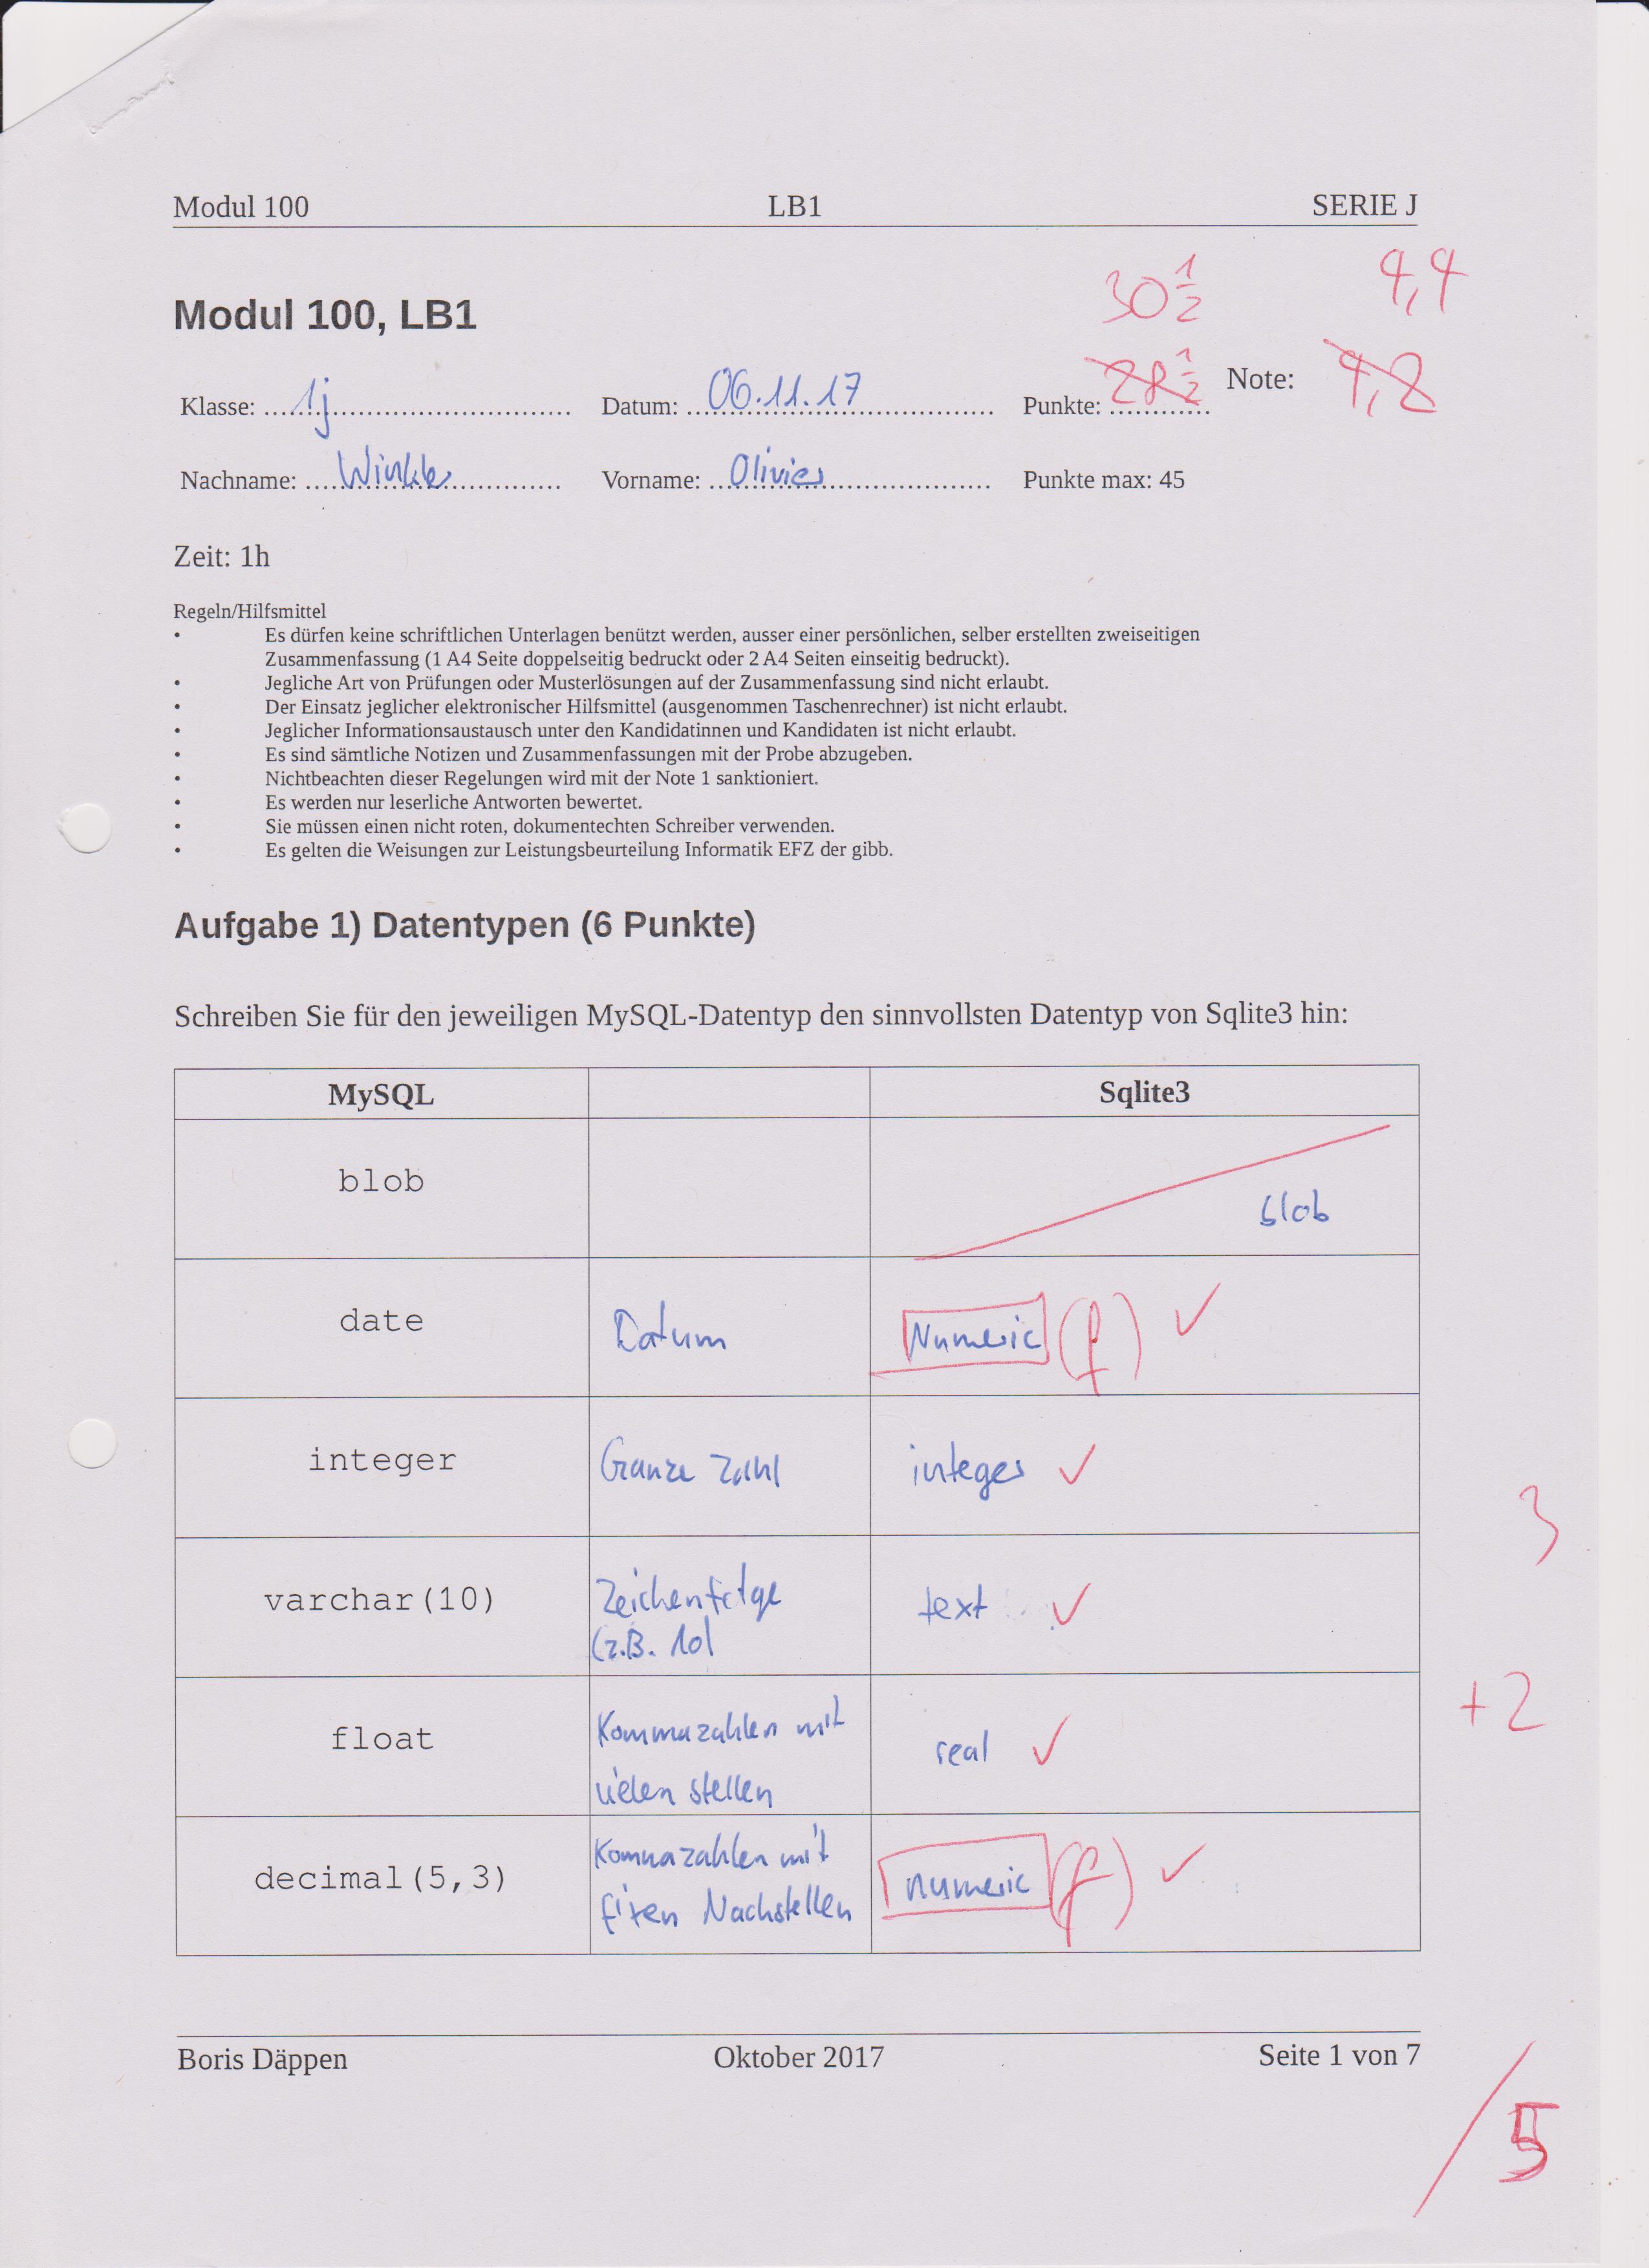 Modul 100 LB1 SERIE J
30 1/2 4,4
Modul 100, LB1
28 1/2 Note: 4,2
Klasse: 1j Datum: 06.11.17 Punkte:
Nachname: Winkler Vorname: Olivier Punkte max: 45
Zeit: 1h
Regeln/Hilfsmittel
• Es dürfen keine schriftlichen Unterlagen benützt werden, ausser einer persönlichen, selber erstellten zweiseitigen
Zusammenfassung (1 A4 Seite doppelseitig bedruckt oder 2 A4 Seiten einseitig bedruckt).
• Jegliche Art von Prüfungen oder Musterlösungen auf der Zusammenfassung sind nicht erlaubt.
• Der Einsatz jeglicher elektronischer Hilfsmittel (ausgenommen Taschenrechner) ist nicht erlaubt.
• Jeglicher Informationsaustausch unter den Kandidatinnen und Kandidaten ist nicht erlaubt.
• Es sind sämtliche Notizen und Zusammenfassungen mit der Probe abzugeben.
• Nichtbeachten dieser Regelungen wird mit der Note 1 sanktioniert.
• Es werden nur leserliche Antworten bewertet.
• Sie müssen einen nicht roten, dokumentechten Schreiber verwenden.
• Es gelten die Weisungen zur Leistungsbeurteilung Informatik EFZ der gibb.
Aufgabe 1) Datentypen (6 Punkte)
Schreiben Sie für den jeweiligen MySQL-Datentyp den sinnvollsten Datentyp von Sqlite3 hin:
MySQL Sqlite3
blob blob
date Datum Numeric (f) ✓
integer Ganze Zahl integer ✓
3
varchar(10) Zeichenfolge text ✓
(z.B. 10)
+2
float Kommazahlen mit real ✓
vielen stellen
decimal(5,3) Kommazahlen mit numeric (f) ✓
fixen Nachstellen
Boris Däppen Oktober 2017 Seite 1 von 7
/5